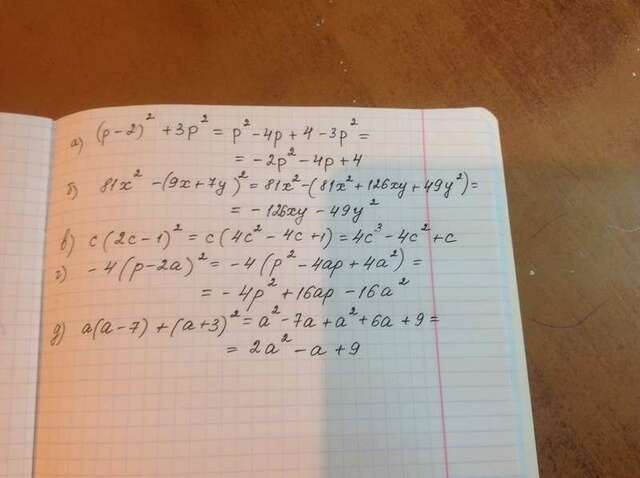 а) (p-2)² + 3p² = p² - 4p + 4 - 3p² =
= -2p² - 4p + 4
б) 81x² - (9x + 7y)² = 81x² - (81x² + 126xy + 49y²) =
= -126xy - 49y²
в) c(2c-1)² = c(4c² - 4c + 1) = 4c³ - 4c² + c
г) -4(p-2a)² = -4(p² - 4ap + 4a²) =
= -4p² + 16ap - 16a²
д) a(a-7) + (a+3)² = a² - 7a + a² + 6a + 9 =
= 2a² - a + 9